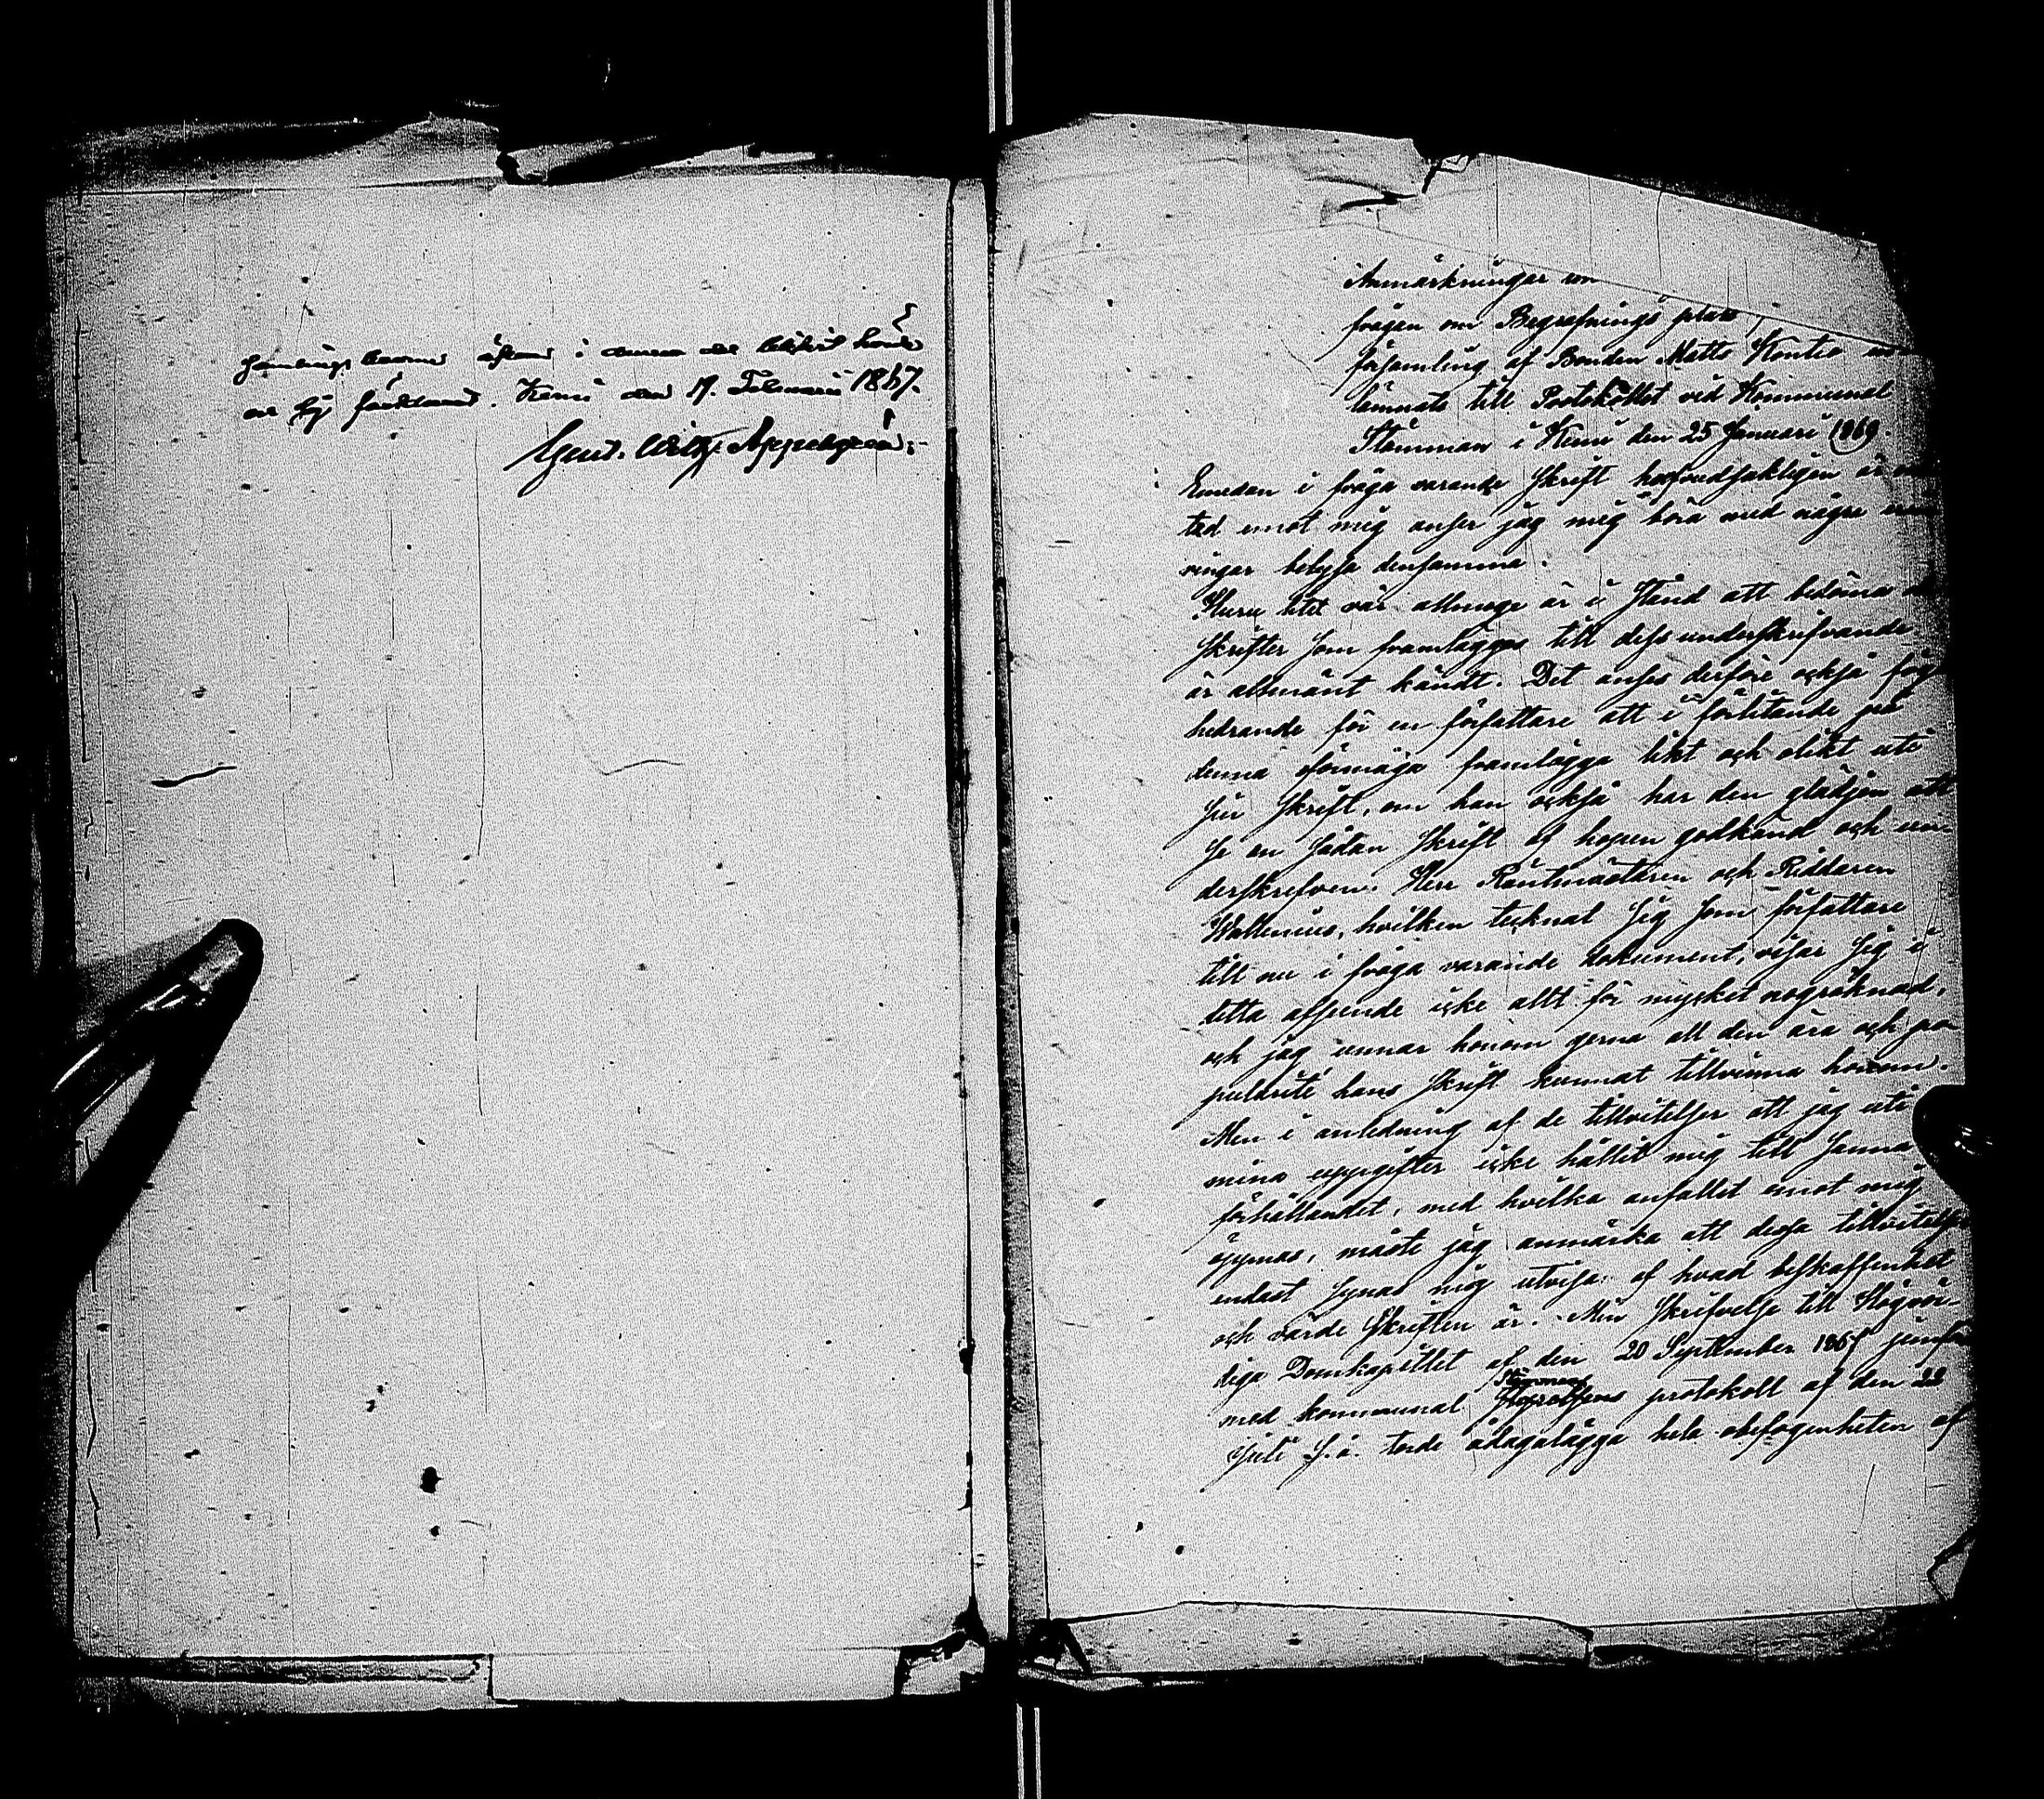 församlings barnens i denna
sig förklarade. Kemi den 17. Februarii 1867.
Gust. Wilh. Appelgren
Anmärkningar
frågan om Begrafnings plats
församling af Bonden Matts Kontio
lämnats till Protokollet vid Kommunal
Stämman i Kemi den 25 Januari 1869.
Emedan i fråga varande Skrift hufvudsakligen är
tad emot mig anser jag mig böra med några
ringar belysa densamma.
Huru litet vår allmoge är i stånd att bedöma
skrifter som framläggas till dess underskrifvande
är allmänt kändt. Det anses derföre också
hedrande för en författare att i förlitande på
denna oförmåga framlägga likt och olikt uti
sin skrift, om han också har den glädjen att
se en sådan skrift af hopen godkänd och un-
derskrefven. Herr Räntmästaren och Riddaren
Wallenius, hvilken tecknat sig som författare
till nu i fråga varande dokument, visar sig i
detta afseende icke allt för mycket nogräknad,
och jag unnar honom gerna all den ära och po
pularité hans skrift kunnat tillvinna honom.
Men i anledning af de tillvitelser att jag uti
mina uppgifter icke hållit mig till sanna
förhållandet, med hvilka anfallet emot mig
öppnas, måste jag anmärka att dessa tillvitelser
endast synas mig utvisa af hvad beskaffenhet
och värde skriften är. Min skrifvelse till Högvör-
diga Domkapitlet af den 20 September
med kommunal Stämmans protokoll af den 22
Juli s. å. torde ådagalägga hela obefogenheten af